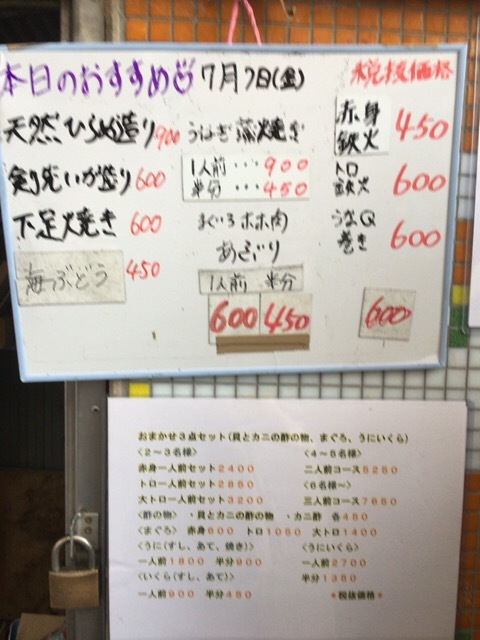 本日のおすすめ 7月7日(金) 税抜価格
天然ひらめ造り 900
剣先いか造り 600
下足火焼き 600
海ぶどう 450
うなぎ蒲焼き
1人前・・・900
半分・・・450
まぐろホホ肉
あぶり
1人前 半分
600 450
赤身鉄火 450
トロ鉄火 600
うなQ巻き 600
600
おまかせ3点セット(貝とカニの酢の物、まぐろ、うにいくら)
<2~3名様> <4~5名様>
赤身一人前セット2400 二人前コース5250
トロ一人前セット2850 <6名様~>
大トロ一人前セット3200 三人前コース7650
<酢の物> ・貝とカニの酢の物 ・カニ酢 各450
<まぐろ> 赤身600 トロ1050 大トロ1400
<うに(すし、あて、焼き)> <うにいくら>
一人前1800 半分900 一人前2700
<いくら(すし、あて)> 半分1350
一人前900 半分450 *税抜価格*